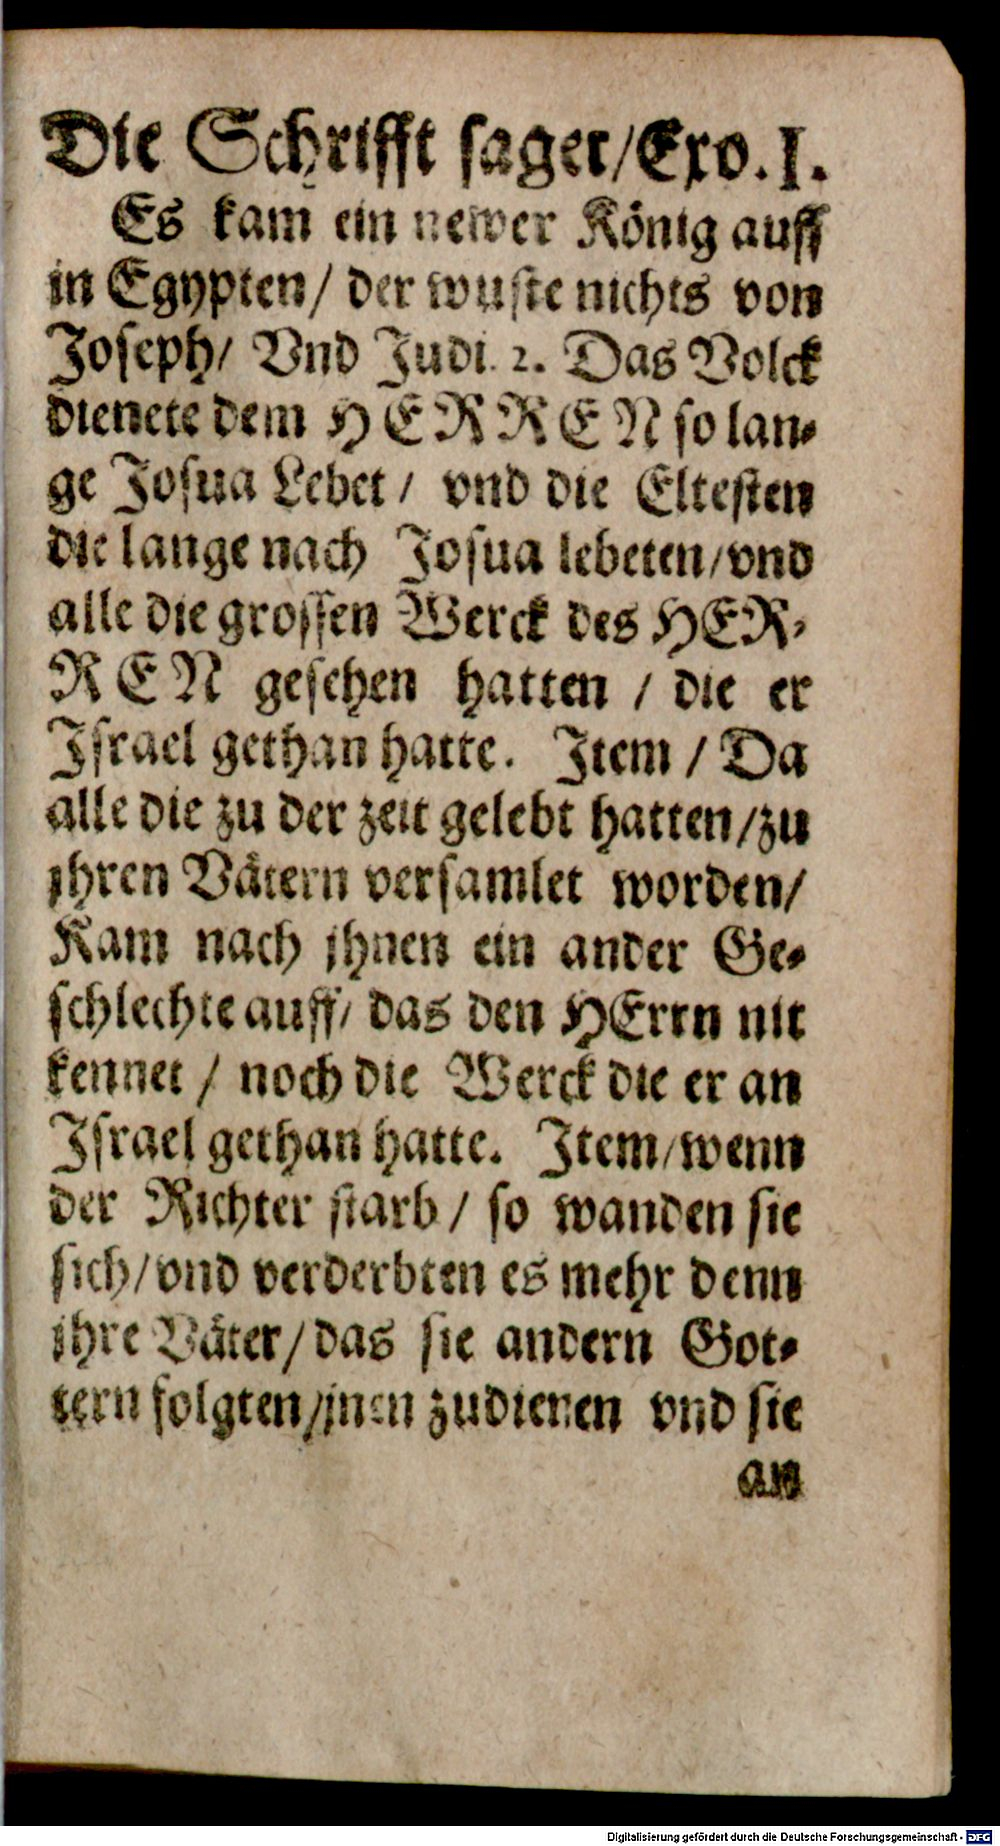 Die Schrifft saget/Exo. I.
Es kam ein newer König auff
in Egypten/ der wuste nichts von
Joseph/ Vnd Judi. 2. Das Volck
dienete dem HERREN so lan⸗
ge Josua Lebet / vnd die Eltesten
die lange nach Josua lebeten/vnd
alle die grossen Werck des HER⸗
REN gesehen hatten / die er
Israel gethan hatte. Item / Da
alle die zu der zeit gelebt hatten/zu
jhren Vätern versamlet worden/
Kam nach jhnen ein ander Ge⸗
schlechte auff/ das den HErrn nit
kennet / noch die Werck die er an
Israel gethan hatte. Item/wenn
der Richter starb / so wanden sie
sich/vnd verderbten es mehr denn
jhre Väter/das sie andern Got⸗
tern folgten/jnen zudienen vnd sie
an
Digitalisierung gefördert durch die Deutsche Forschungsgemeinschaft - DFG